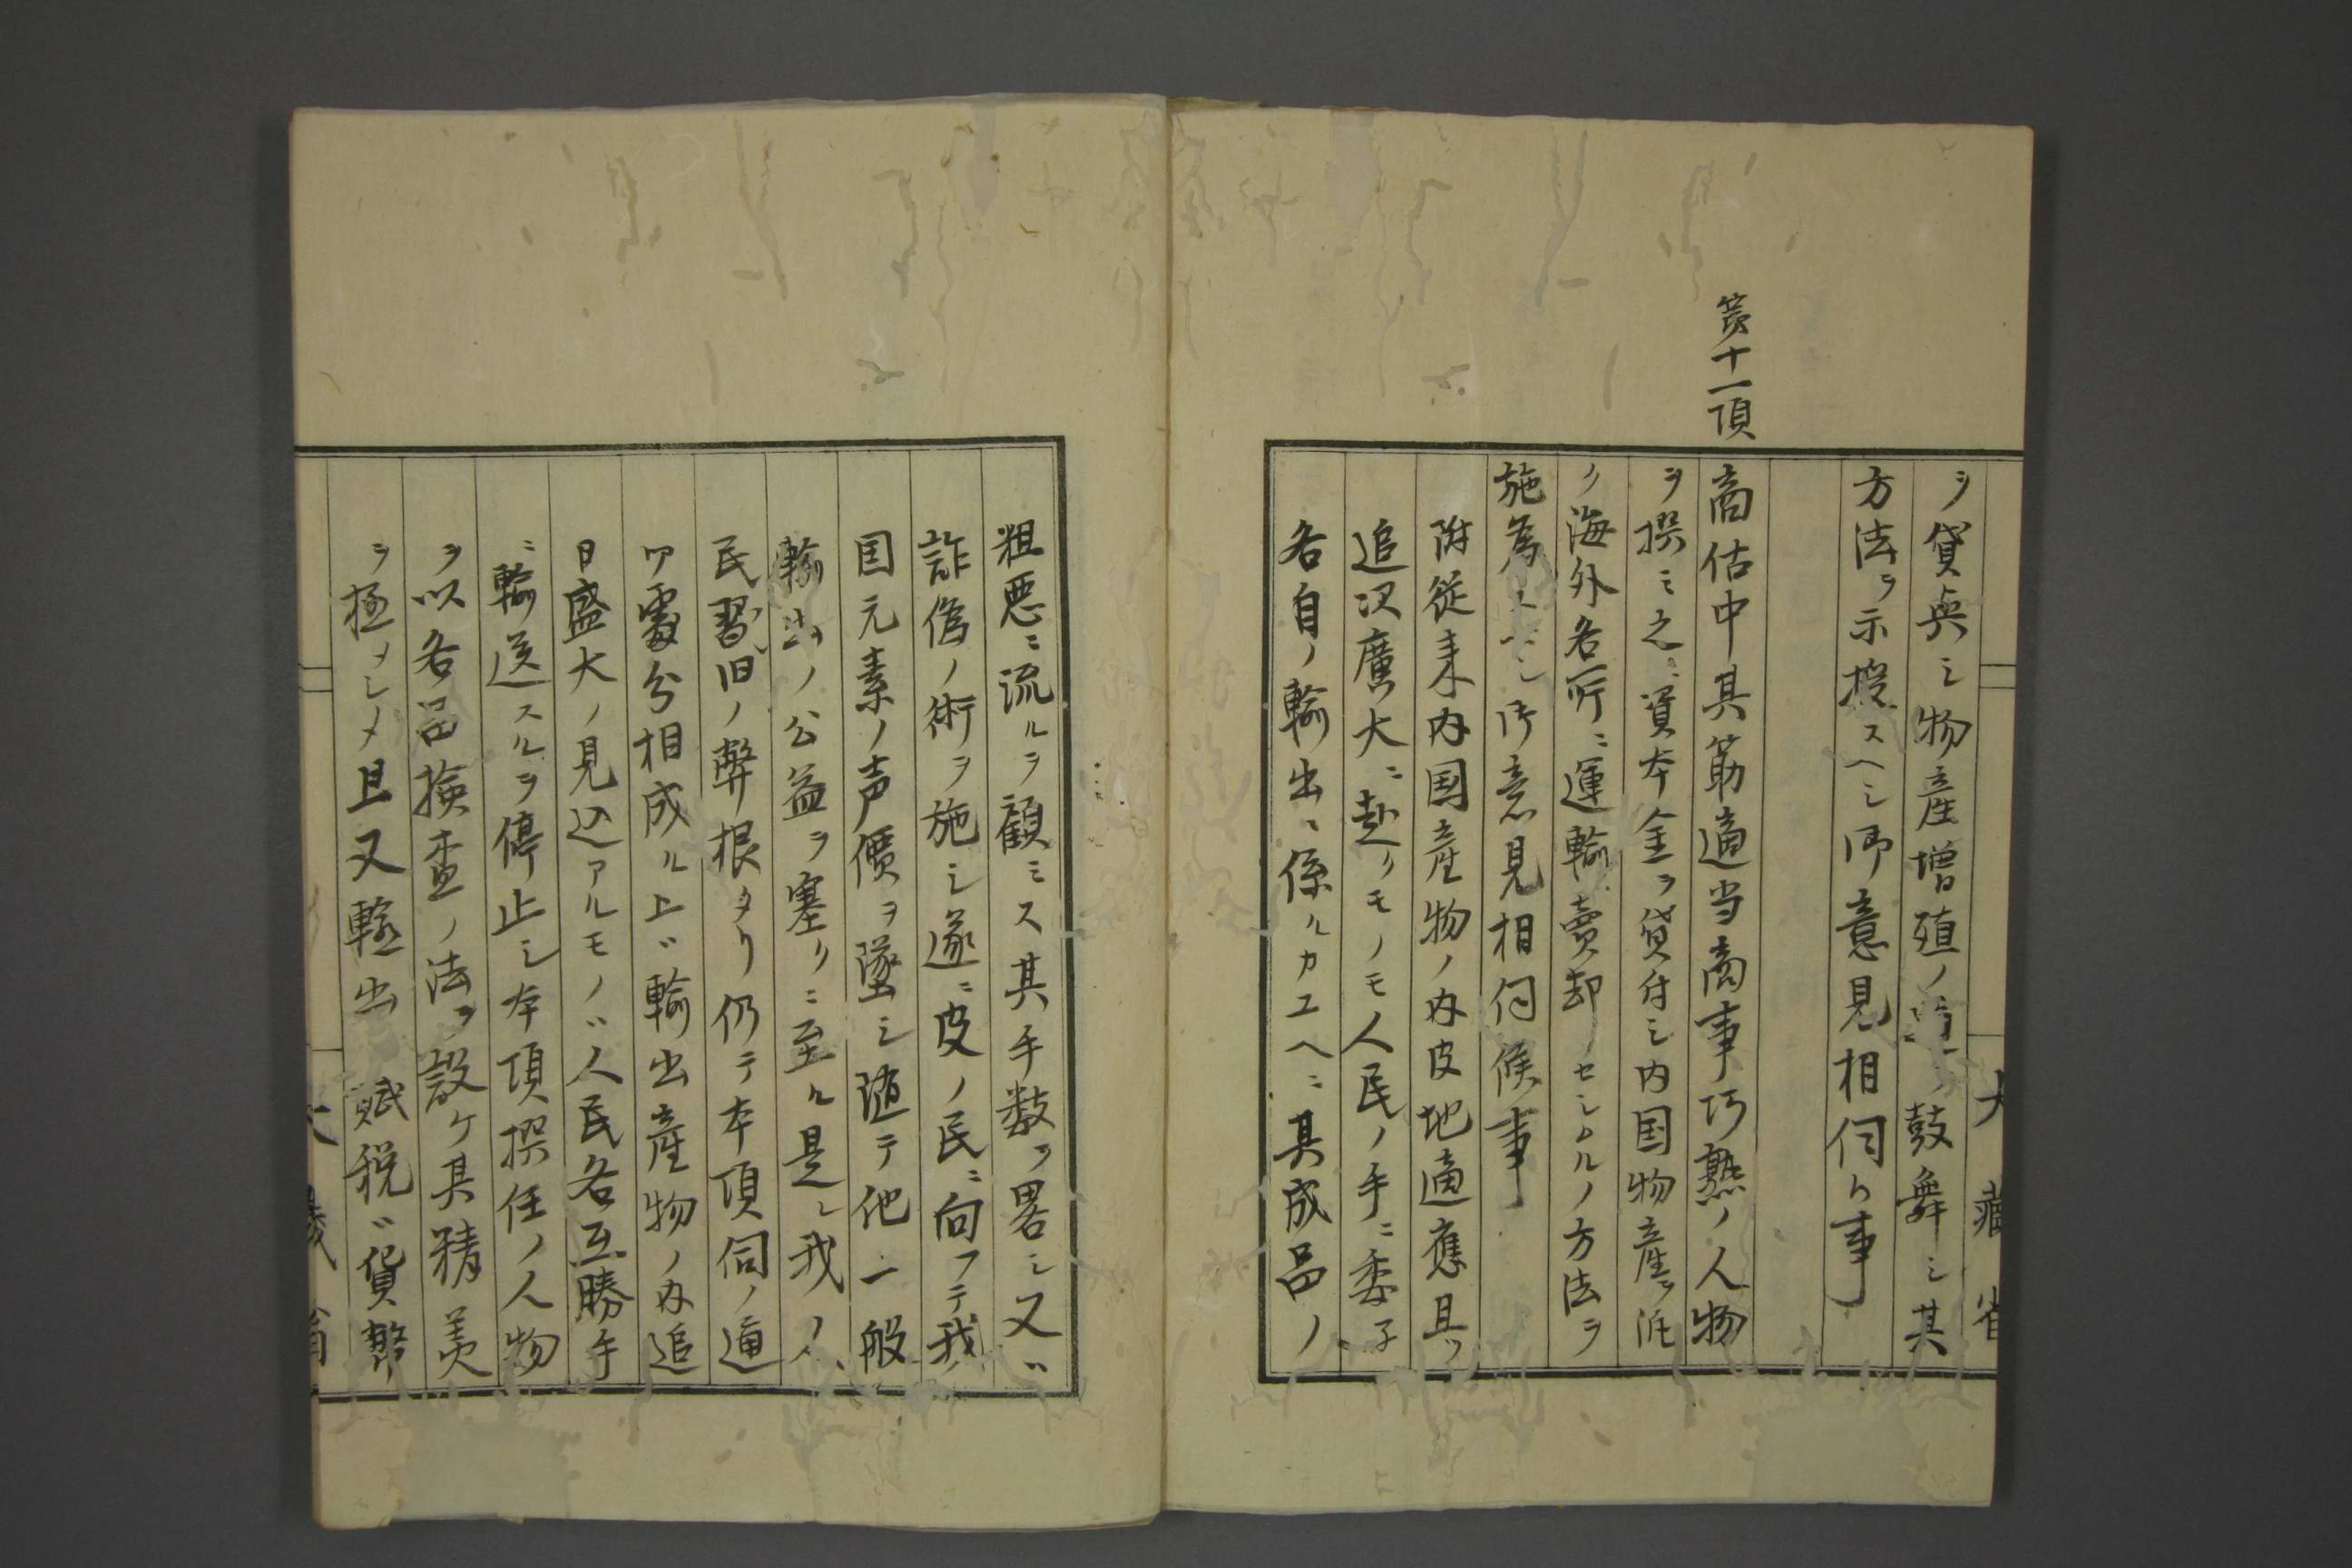 ヲ貸與シ物産増殖ノ道ヲ鼓舞シ其
方法ヲ示授スヘシ御意見相伺候事
第十一項
商估中其筋適当商事巧熟ノ人物
ヲ撰ミ之ニ資本金ヲ貸付シ内国物産ヲ
ノ海外各所ニ運輸賣却セシムルノ方法ヲ
施為スヘシ御意見相伺候事
附従来内国産物ノ内皮地適應且ツ
追次廣大ニ赴クモノモ人民ノ手ニ委子
各自ノ輸出ニ係ルカユヘニ其成品ノ
大藏省
粗悪ニ流ルヲ顧ミス其手数ヲ畧シ又ハ
詐偽ノ術ヲ施シ遂ニ皮ノ民ニ向フテ我
国元素ノ声價ヲ墜シ随テ他一般
輸出ノ公益ヲ塞クニ至ル是レ我ノ人
民習旧ノ弊根タリ仍テ本項伺ノ通
リ處分相成ル上ハ輸出産物ノ内追
日盛大ノ見込アルモノハ人民各互勝手
ニ輸送スルヲ停止シ本項撰任ノ人物
ヲ以各品検査ノ法ヲ設ケ其精美
ヲ極メシメ且又輸出賦税ハ貨幣
大藏省